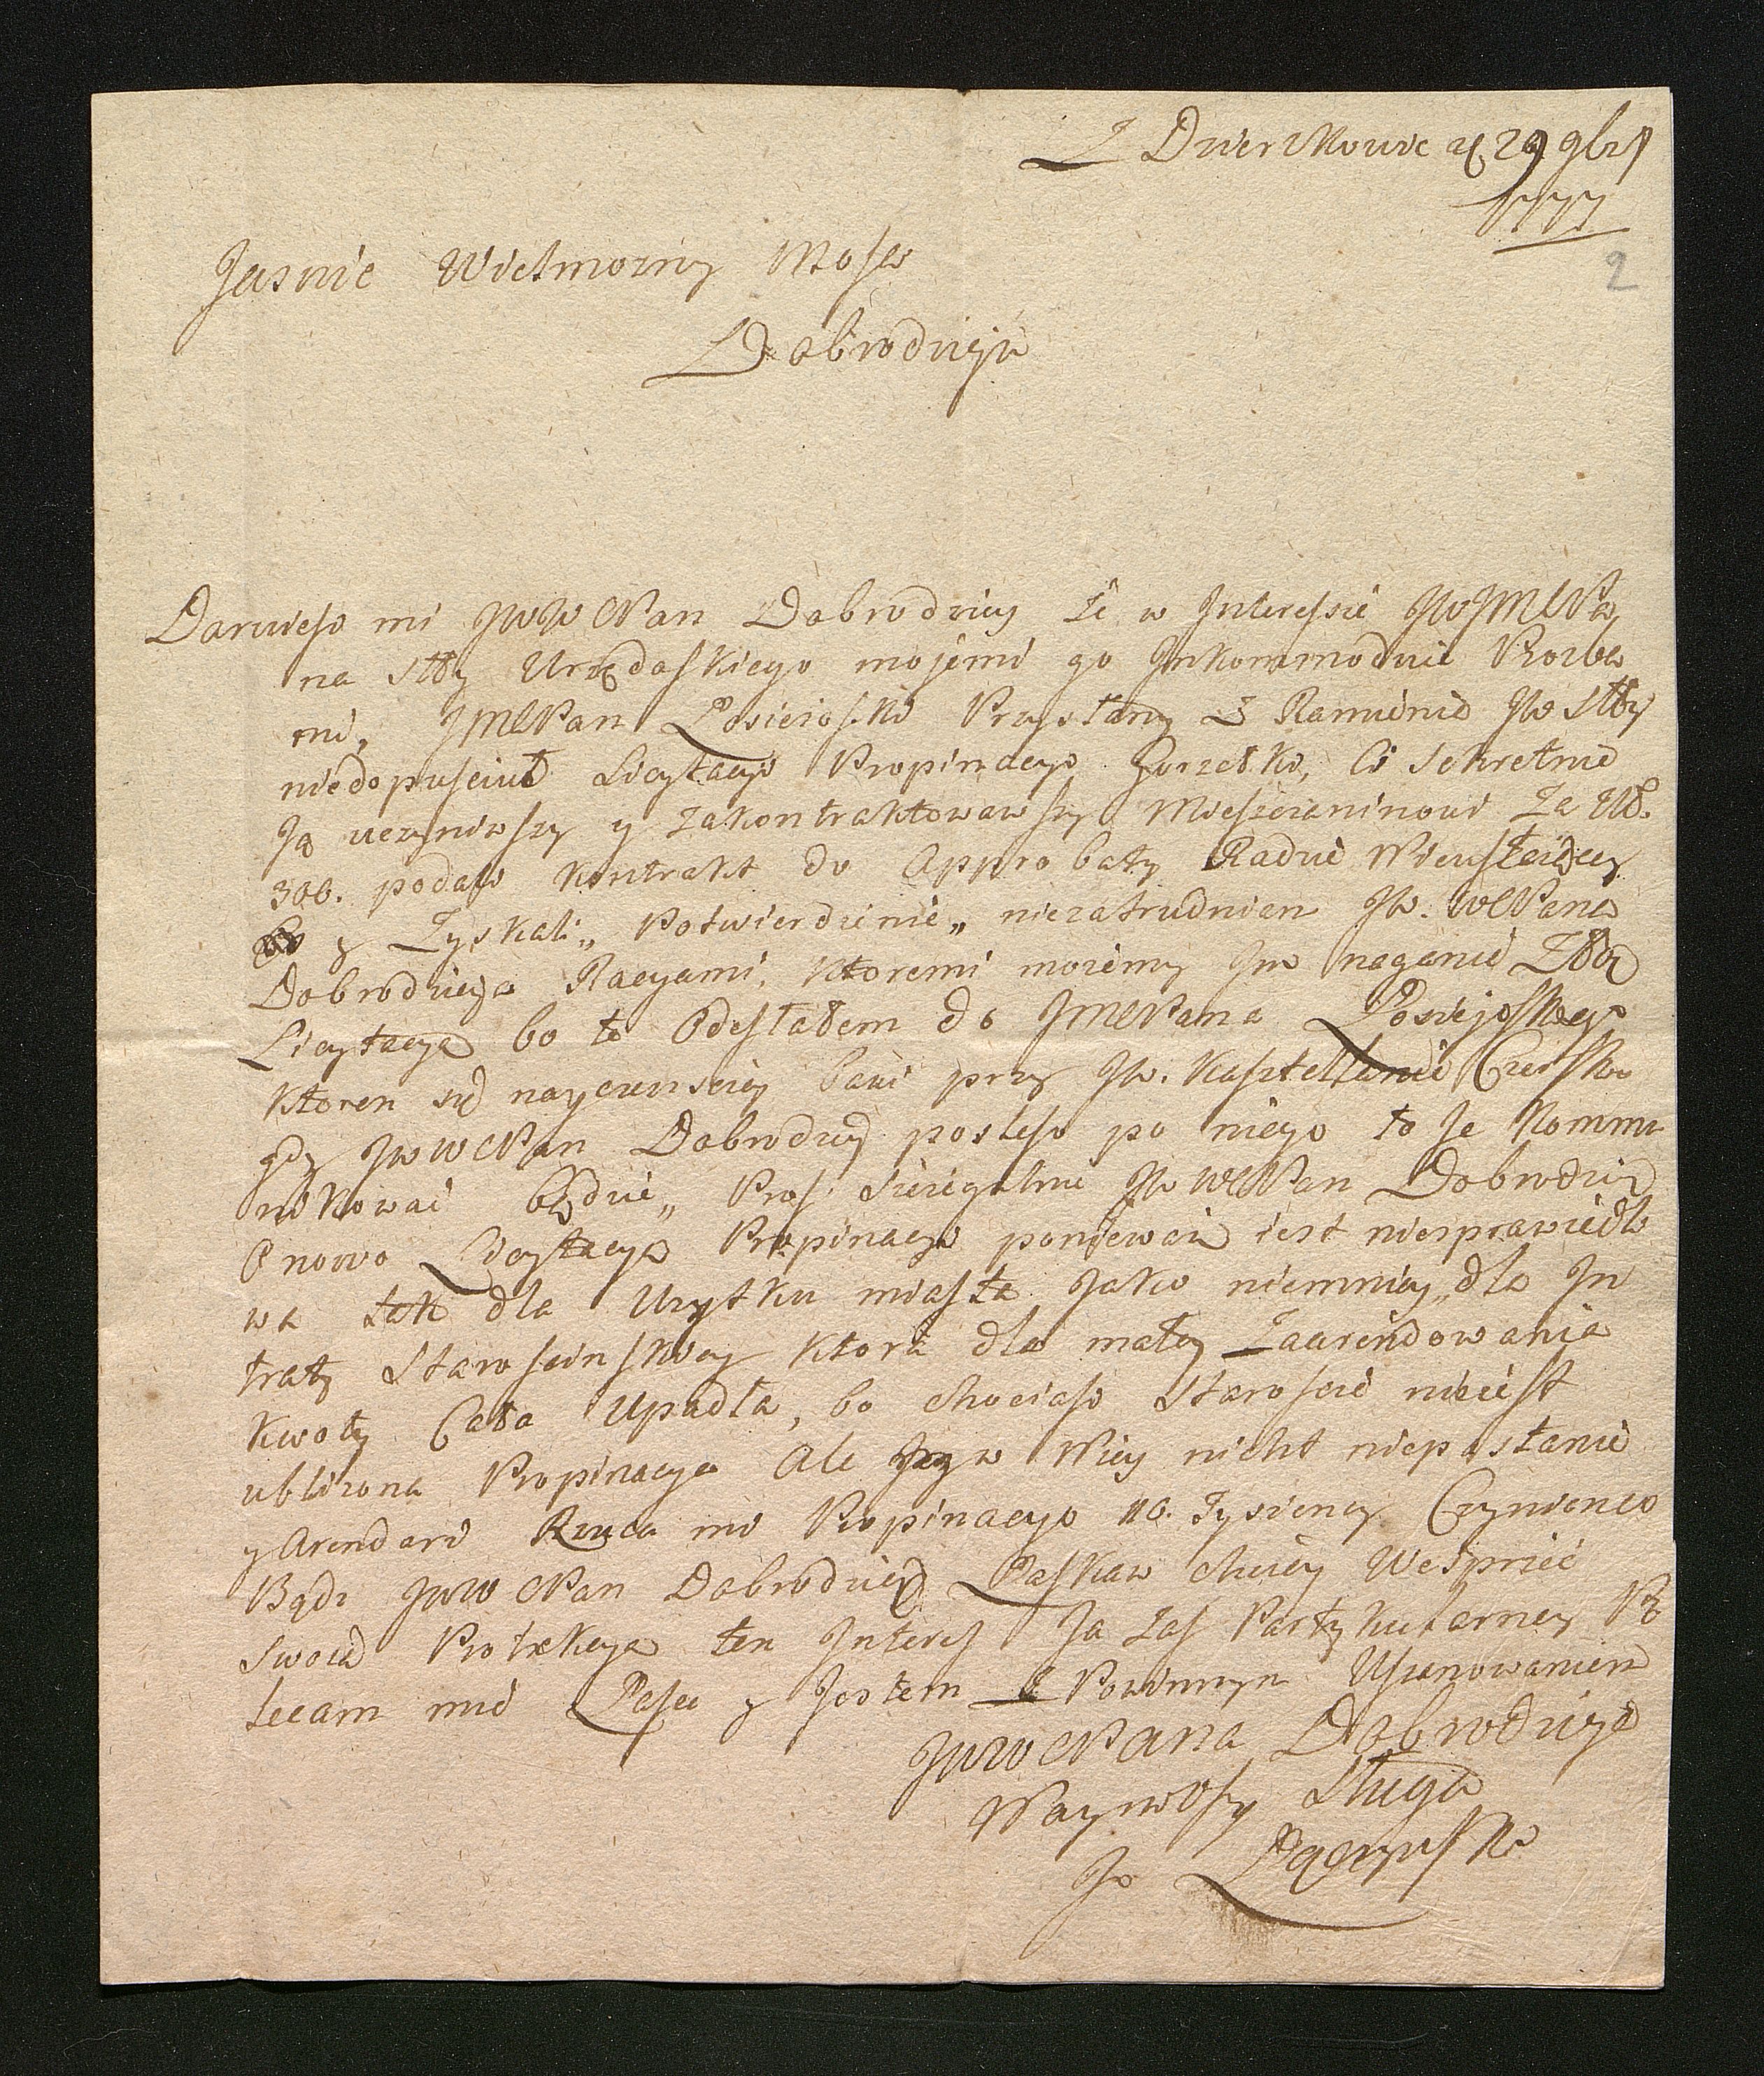 Z Dzierzkowic d 29 9bris
1777
2
Jasnie Wielmozny Mosci
Dobrodzieju
Daruiesz mi JWWCPan Dobrodziey że w Interessie JWJMCPa
na Stty Urzędaskiego mojemi go Inkommoduie Prozba
mi, JMCPan Łosieioski Przystany z Ramienia JW Stty
niedopusciuł Licytacyi Propinacyi Gorzałki, Ci Sekretnie
Ją uczyniwszy y zakontraktowawszy Mieszczaninowi za Zł.
300. podali Kontrakt do Approbaty Radzie Nieustaiącey
y Zyskali„ Potwierdzenie„ niezatrudniam JW. WCPana
Dobrodzieja Racyami, Ktoremi mozemy Im naganić Złą
Licytacyą bo te Odesłałem do JMCPana Łosiejoskiego
Ktoren się nayczensciey bawi przy JW. Kasztellanie Czerskim
gdy JWWCPan Dobrodziey poslesz po niego to Je Kommu
nikować będzie„ Prosi Sczegulnie JWWCPan Dobrodzieia
O nowo Licytacyą Propinacyi poniewaz iest niesprawiedli
wa tak dla Uzytku miasta Jako niemniey„ dla In
traty Staroscinskiey Ktora dla małey Zaarendowania
Kwoty Cała Upadła, bo chociasz Staroscie nieiest
ubliżona Propinacya Ale Jey w Niey nicht niepostanie
y Arendarz Rzuca mi Propinacyo 10. Tysiency Czynienco
Bądz JWWCPan Dobrodziey Łaskaw chciey Wesprzeć
Swoią Protekcyą ten Interes Ja zas Partykularney Po
lecam mie Łasce y Jestem z Powinnym Uszanowaniem
JWWCPana Dobrodzieja
Naynizszy Sługa
Jo Łączynski